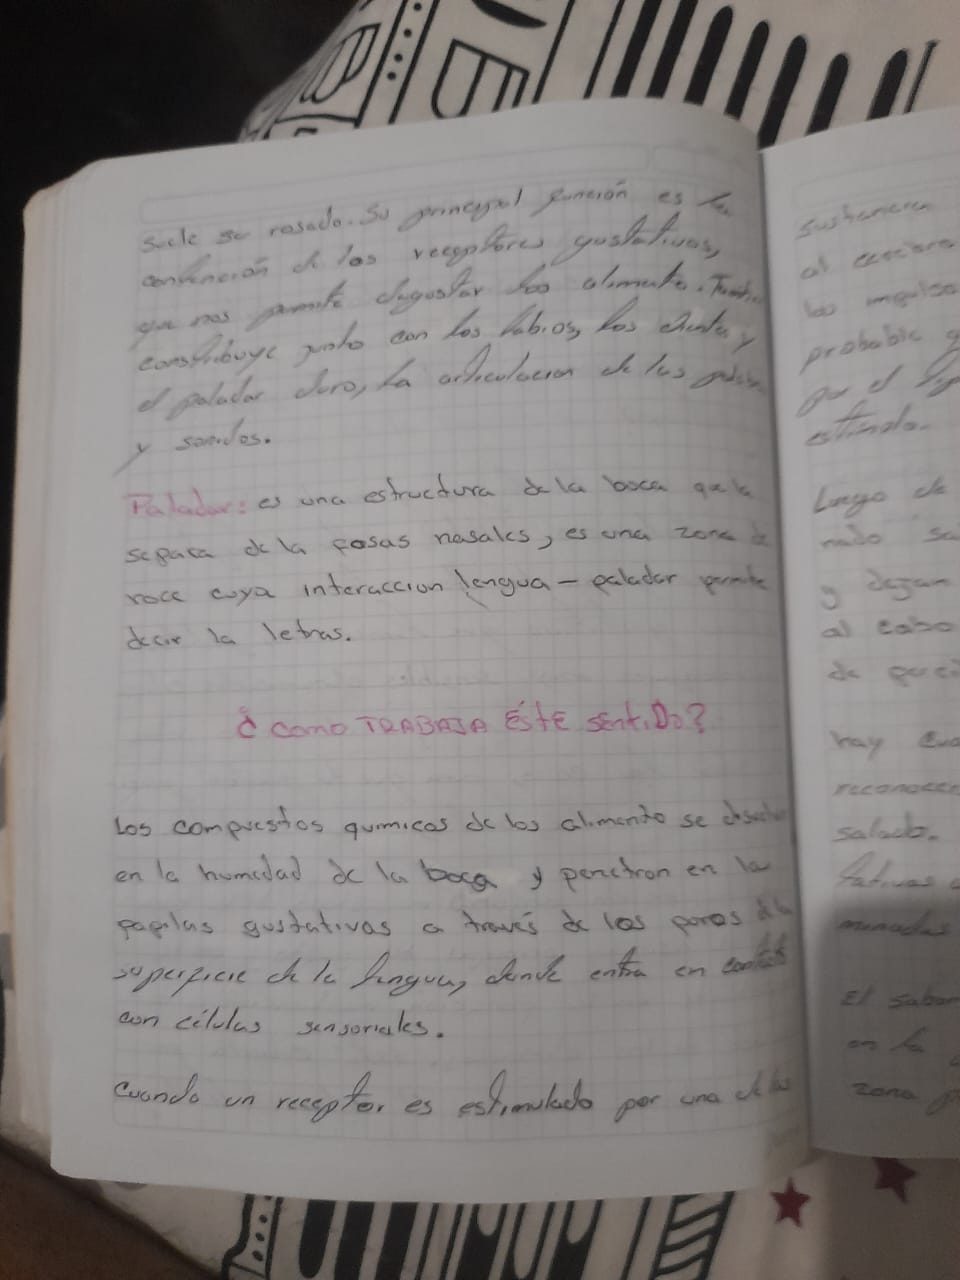 suele ser rosado. Su principal función es la
contención de los receptores gustativos,
que nos permite degustar los alimentos.
contribuye junto con los labios, los dientes y
el paladar duro, la articulacion de las
y sonidos.
Paladar: es una estructura de la boca que la
separa de la fosas nasales, es una zona de
roce cuya interaccion lengua - paladar permite
decir la letras.
¿ COMO TRABAJA ESTE SENTIDO?
Los compuestos quimicos de los alimento se
en la humedad de la boca y penetran en la
papilas gustativas a través de los poros de la
superficie de la lengua, donde entra en contacto
con células sensoriales.
Cuando un receptor es estimulado por una de las
sustancia
al
los impulso
probable
por el
estimulo.
Luego de
y dejan
al cabo
de
hay
reconocer
salado.
El sabor
en la
zona